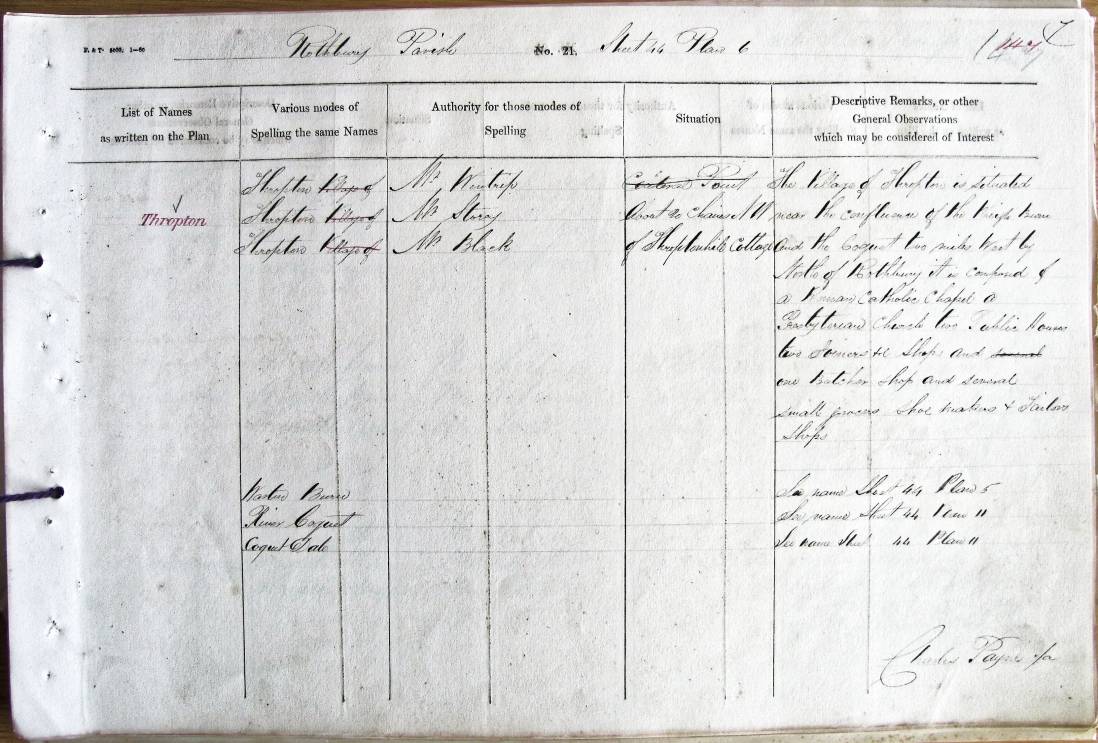 P. & T. 4000. 1—60
Rothbury Parish No. 21. Sheet 44 Plan 6
7
List of Names
as written on the Plan
Various modes of
Spelling the same Names
Authority for those modes of
Spelling
Situation
Descriptive Remarks, or other
General Observations
which may be considered of Interest
Thropton
Thropton Village of
Thropton Village of
Thropton Village of
Mr. Wintrip
Mr Storey
Mr Black
About 20 Chains N.W
of Thropton Cottage
The Village of Thropton is situated
near the confluence of the Wreigh Burn
and the Coquet two miles West by
North of Rothbury it is composed of
a Roman Catholic Chapel a
Presbyterian Church two Public Houses
two Joiners &c Shops and several
one Butcher Shop and several
small grocers Shoe makers & Tailors
Shops
Warton Burn
River Coquet
Coquet Dale
See name Sheet 44 Plan 5
See name Sheet 44 Plan 11
See name Sheet 44 Plan 11
Charles Payne c/a